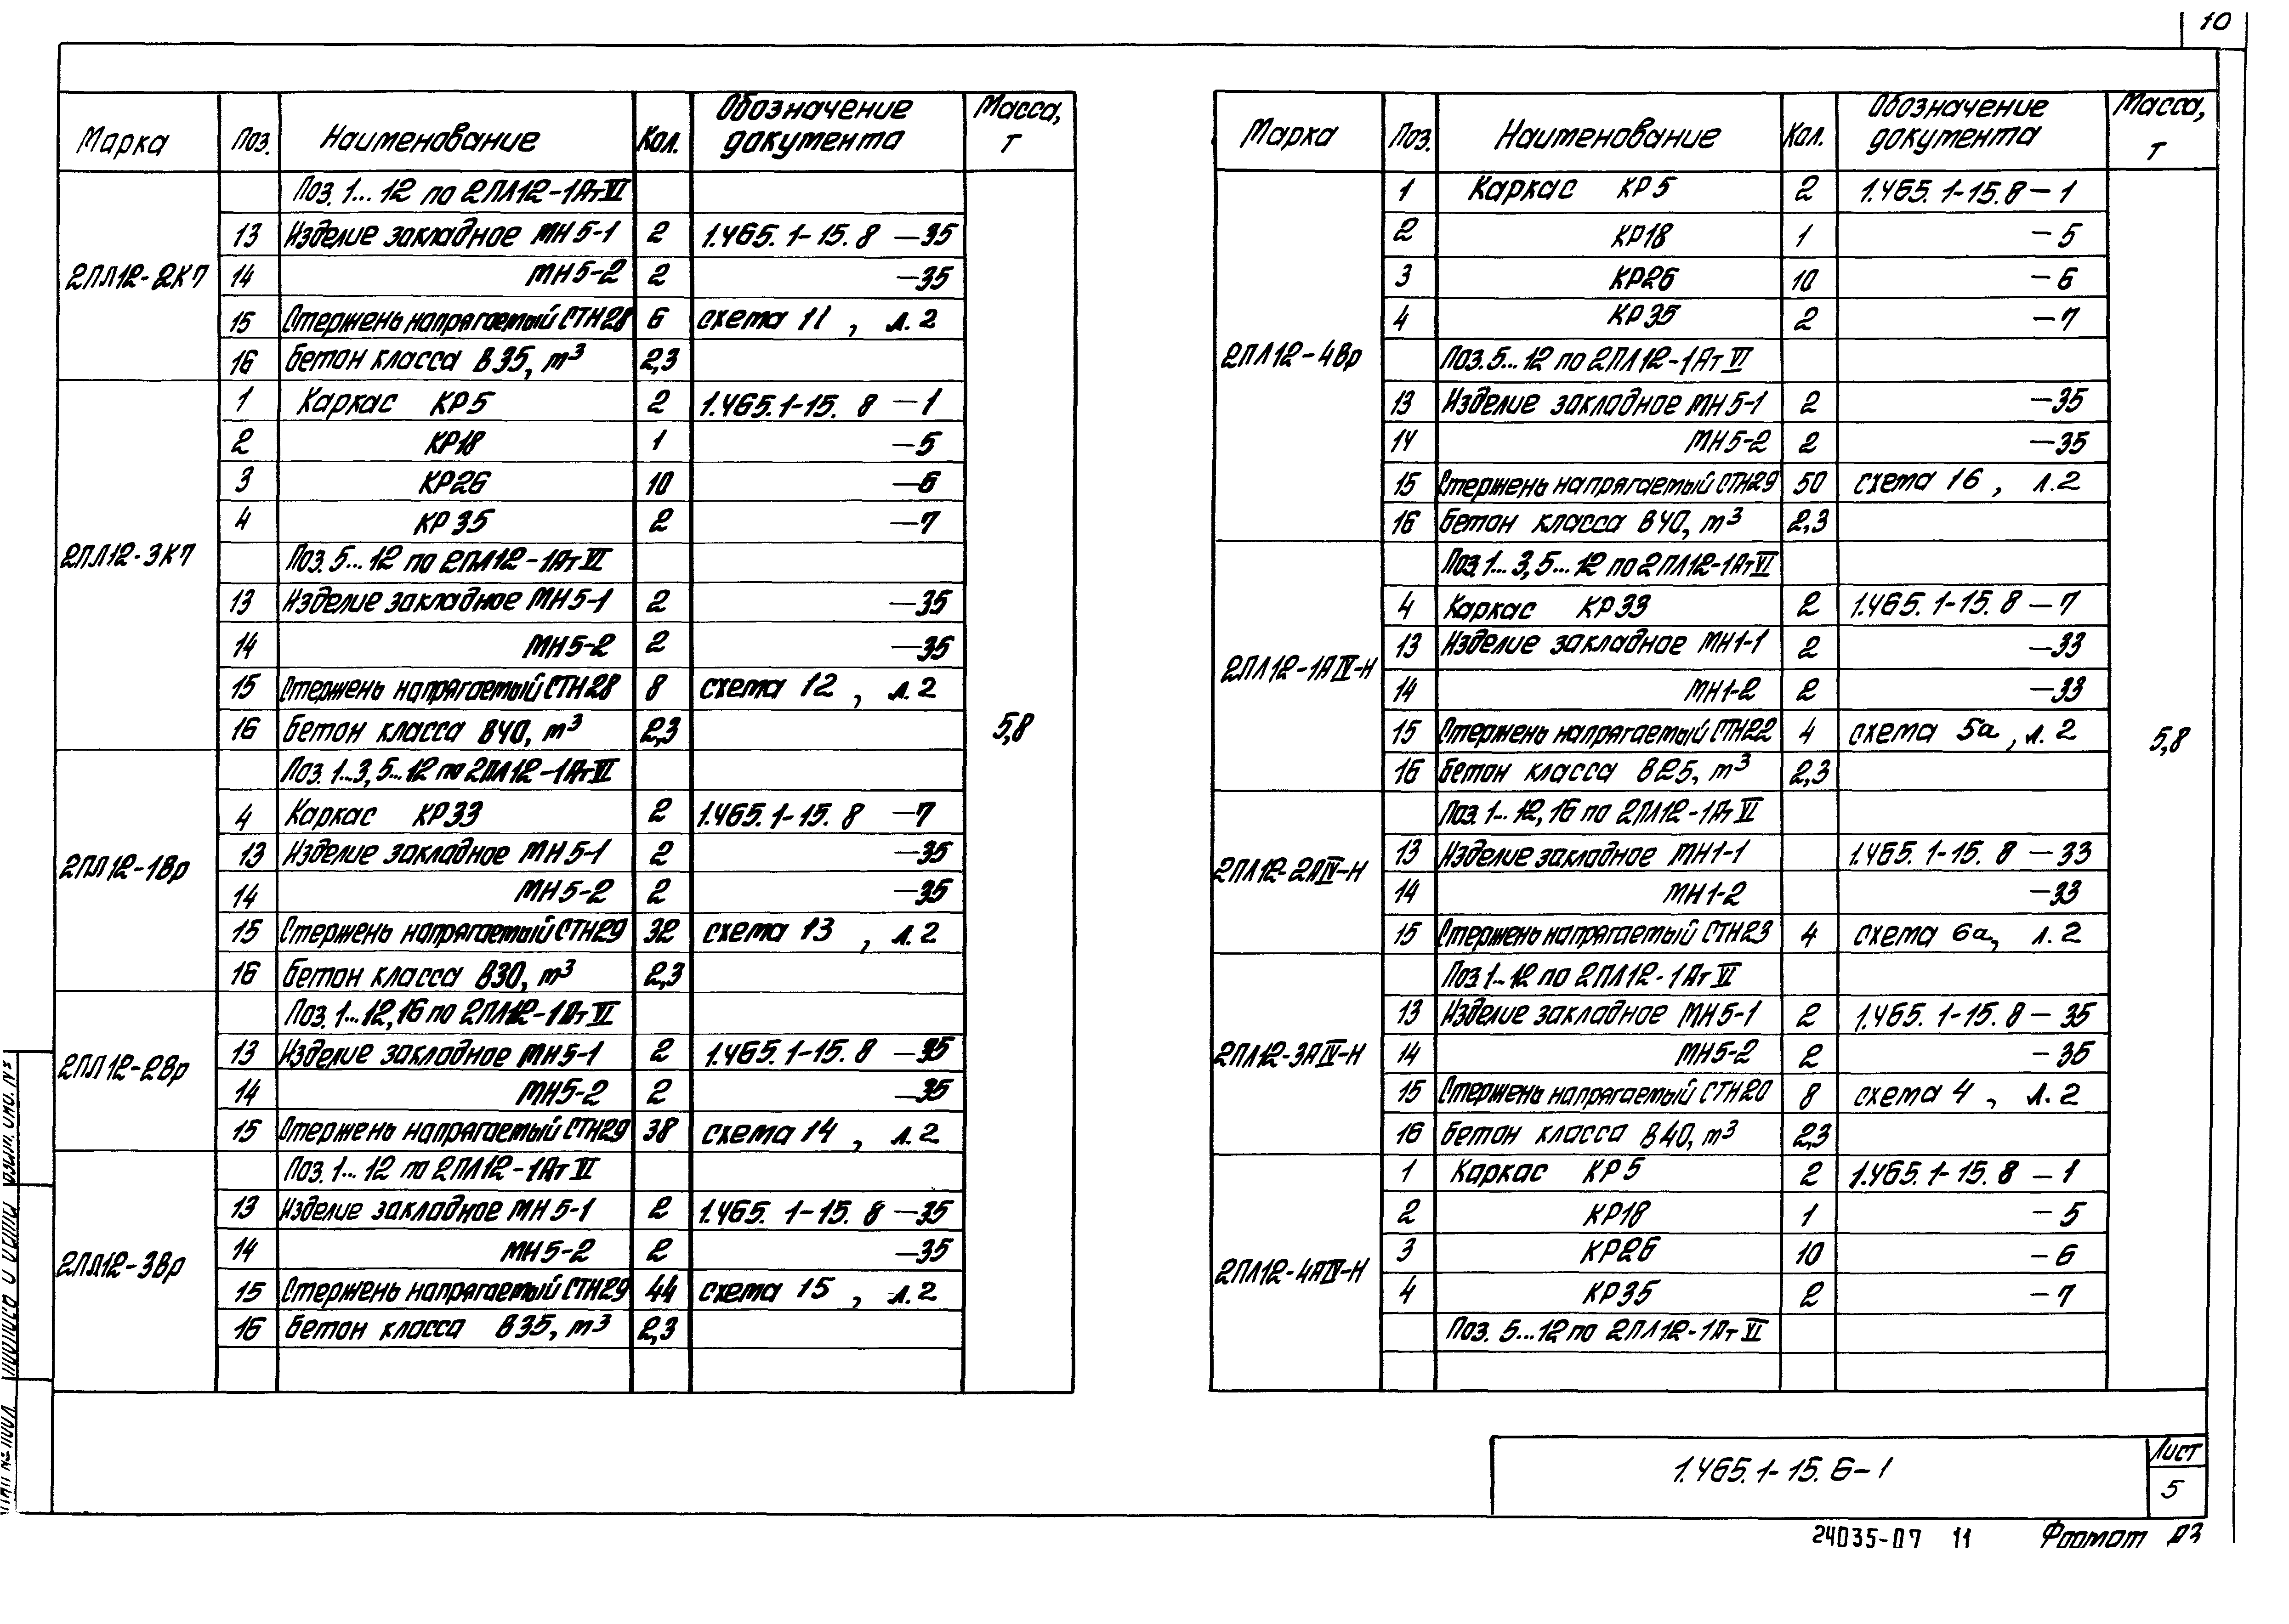 10
Марка Поз. Наименование Кол. Обозначение документа Масса, т
2ПЛ12-2К7
Поз. 1...12 по 2ПЛ12-1АтVI
13 Изделие закладное МН5-1 2 1.465.1-15.8 -35
14 МН5-2 2 -35
15 Стержень напрягаемый СТН28 6 схема 11, л.2
16 Бетон класса В35, м³ 2,3
2ПЛ12-3К7
1 Каркас КР5 2 1.465.1-15.8 -1
2 КР18 1 -5
3 КР26 10 -6
4 КР35 2 -7
Поз. 5...12 по 2ПЛ12-1АтVI
13 Изделие закладное МН5-1 2 -35
14 МН5-2 2 -35
15 Стержень напрягаемый СТН28 8 схема 12, л.2
16 Бетон класса В40, м³ 2,3
5,8
2ПЛ12-1Вр
Поз. 1...3, 5...12 по 2ПЛ12-1АтVI
4 Каркас КР33 2 1.465.1-15.8 -7
13 Изделие закладное МН5-1 2 -35
14 МН5-2 2 -35
15 Стержень напрягаемый СТН29 32 схема 13, л.2
16 Бетон класса В30, м³ 2,3
2ПЛ12-2Вр
Поз. 1...12, 16 по 2ПЛ12-1АтVI
13 Изделие закладное МН5-1 2 1.465.1-15.8 -35
14 МН5-2 2 -35
15 Стержень напрягаемый СТН29 38 схема 14, л.2
2ПЛ12-3Вр
Поз. 1...12 по 2ПЛ12-1АтVI
13 Изделие закладное МН5-1 2 1.465.1-15.8 -35
14 МН5-2 2 -35
15 Стержень напрягаемый СТН29 44 схема 15, л.2
16 Бетон класса В35, м³ 2,3
Марка Поз. Наименование Кол. Обозначение документа Масса, т
2ПЛ12-4Вр
1 Каркас КР5 2 1.465.1-15.8 -1
2 КР18 1 -5
3 КР26 10 -6
4 КР35 2 -7
Поз. 5...12 по 2ПЛ12-1АтVI
13 Изделие закладное МН5-1 2 -35
14 МН5-2 2 -35
15 Стержень напрягаемый СТН29 50 схема 16, л.2
16 Бетон класса В40, м³ 2,3
2ПЛ12-1АIV-Н
Поз. 1...3, 5...12 по 2ПЛ12-1АтVI
4 Каркас КР33 2 1.465.1-15.8 -7
13 Изделие закладное МН1-1 2 -33
14 МН1-2 2 -33
15 Стержень напрягаемый СТН22 4 схема 5а, л.2
16 Бетон класса В25, м³ 2,3
5,8
2ПЛ12-2АIV-Н
Поз. 1...12, 16 по 2ПЛ12-1АтVI
13 Изделие закладное МН1-1 2 1.465.1-15.8 -33
14 МН1-2 2 -33
15 Стержень напрягаемый СТН23 4 схема 6а, л.2
2ПЛ12-3АIV-Н
Поз. 1...12 по 2ПЛ12-1АтVI
13 Изделие закладное МН5-1 2 1.465.1-15.8 -35
14 МН5-2 2 -35
15 Стержень напрягаемый СТН20 8 схема 4, л.2
16 Бетон класса В40, м³ 2,3
2ПЛ12-4АIV-Н
1 Каркас КР5 2 1.465.1-15.8 -1
2 КР18 1 -5
3 КР26 10 -6
4 КР35 2 -7
Поз. 5...12 по 2ПЛ12-1АтVI
1.465.1-15.6-1
Лист
5
24035-07 11 Формат А3